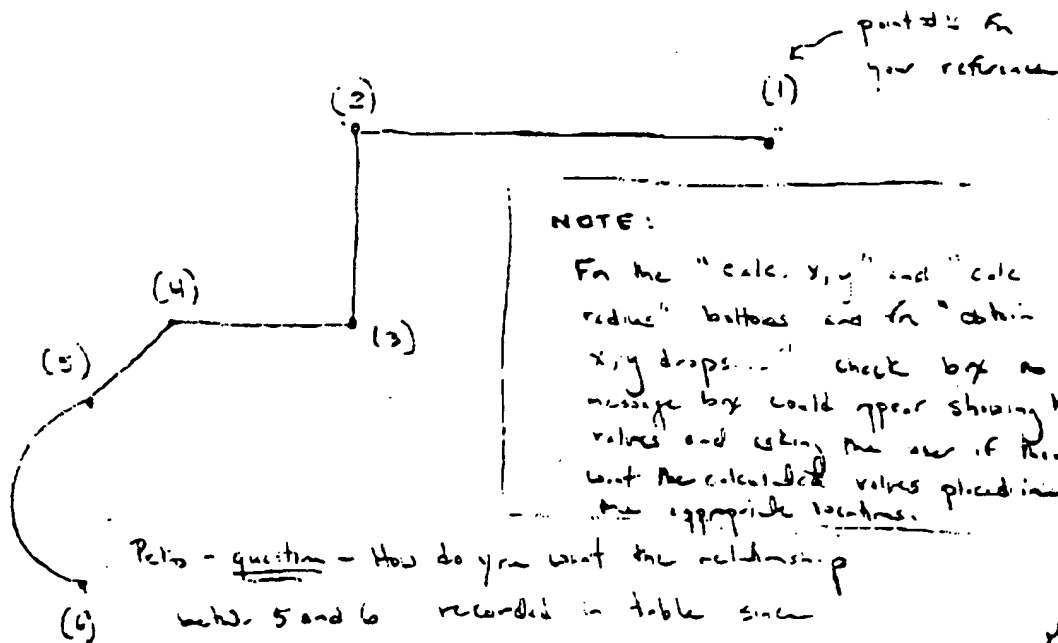 point #'s for
your reference
(1)
(2)
NOTE:
For the "calc. x,y" and "calc
radius" buttons and for "obtain
x,y drops..." check box
message box could appear showing
values and asking the user if
want the calculated values placed in
the appropriate locations.
(4)
(3)
(5)
- question - How do you want the relationship
5 and 6 recorded in table since
(6)